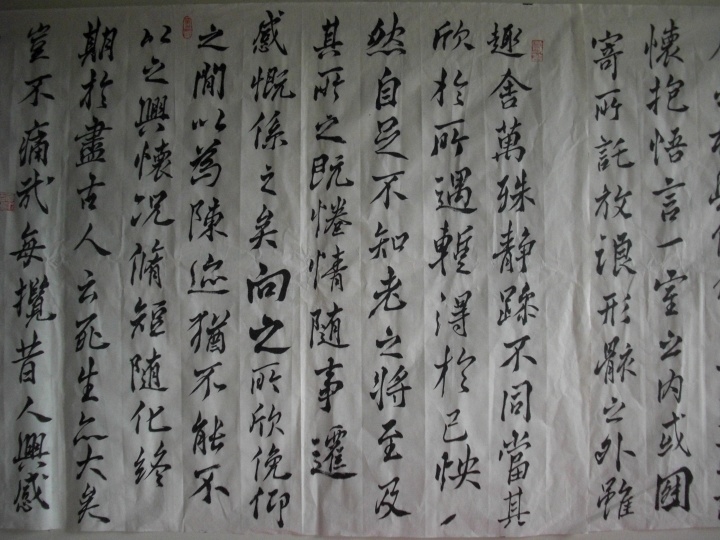 懷抱悟言一室之內或因
寄所託放浪形骸之外雖
趣舍萬殊静躁不同當其
欣於所遇蹔得於己怏
然自足不知老之將至及
其所之既惓情隨事遷
感慨係之矣向之所欣俛仰
之間以為陳迹猶不能不
以之興懷況脩短隨化終
期於盡古人云死生亦大矣
豈不痛哉每攬昔人興感